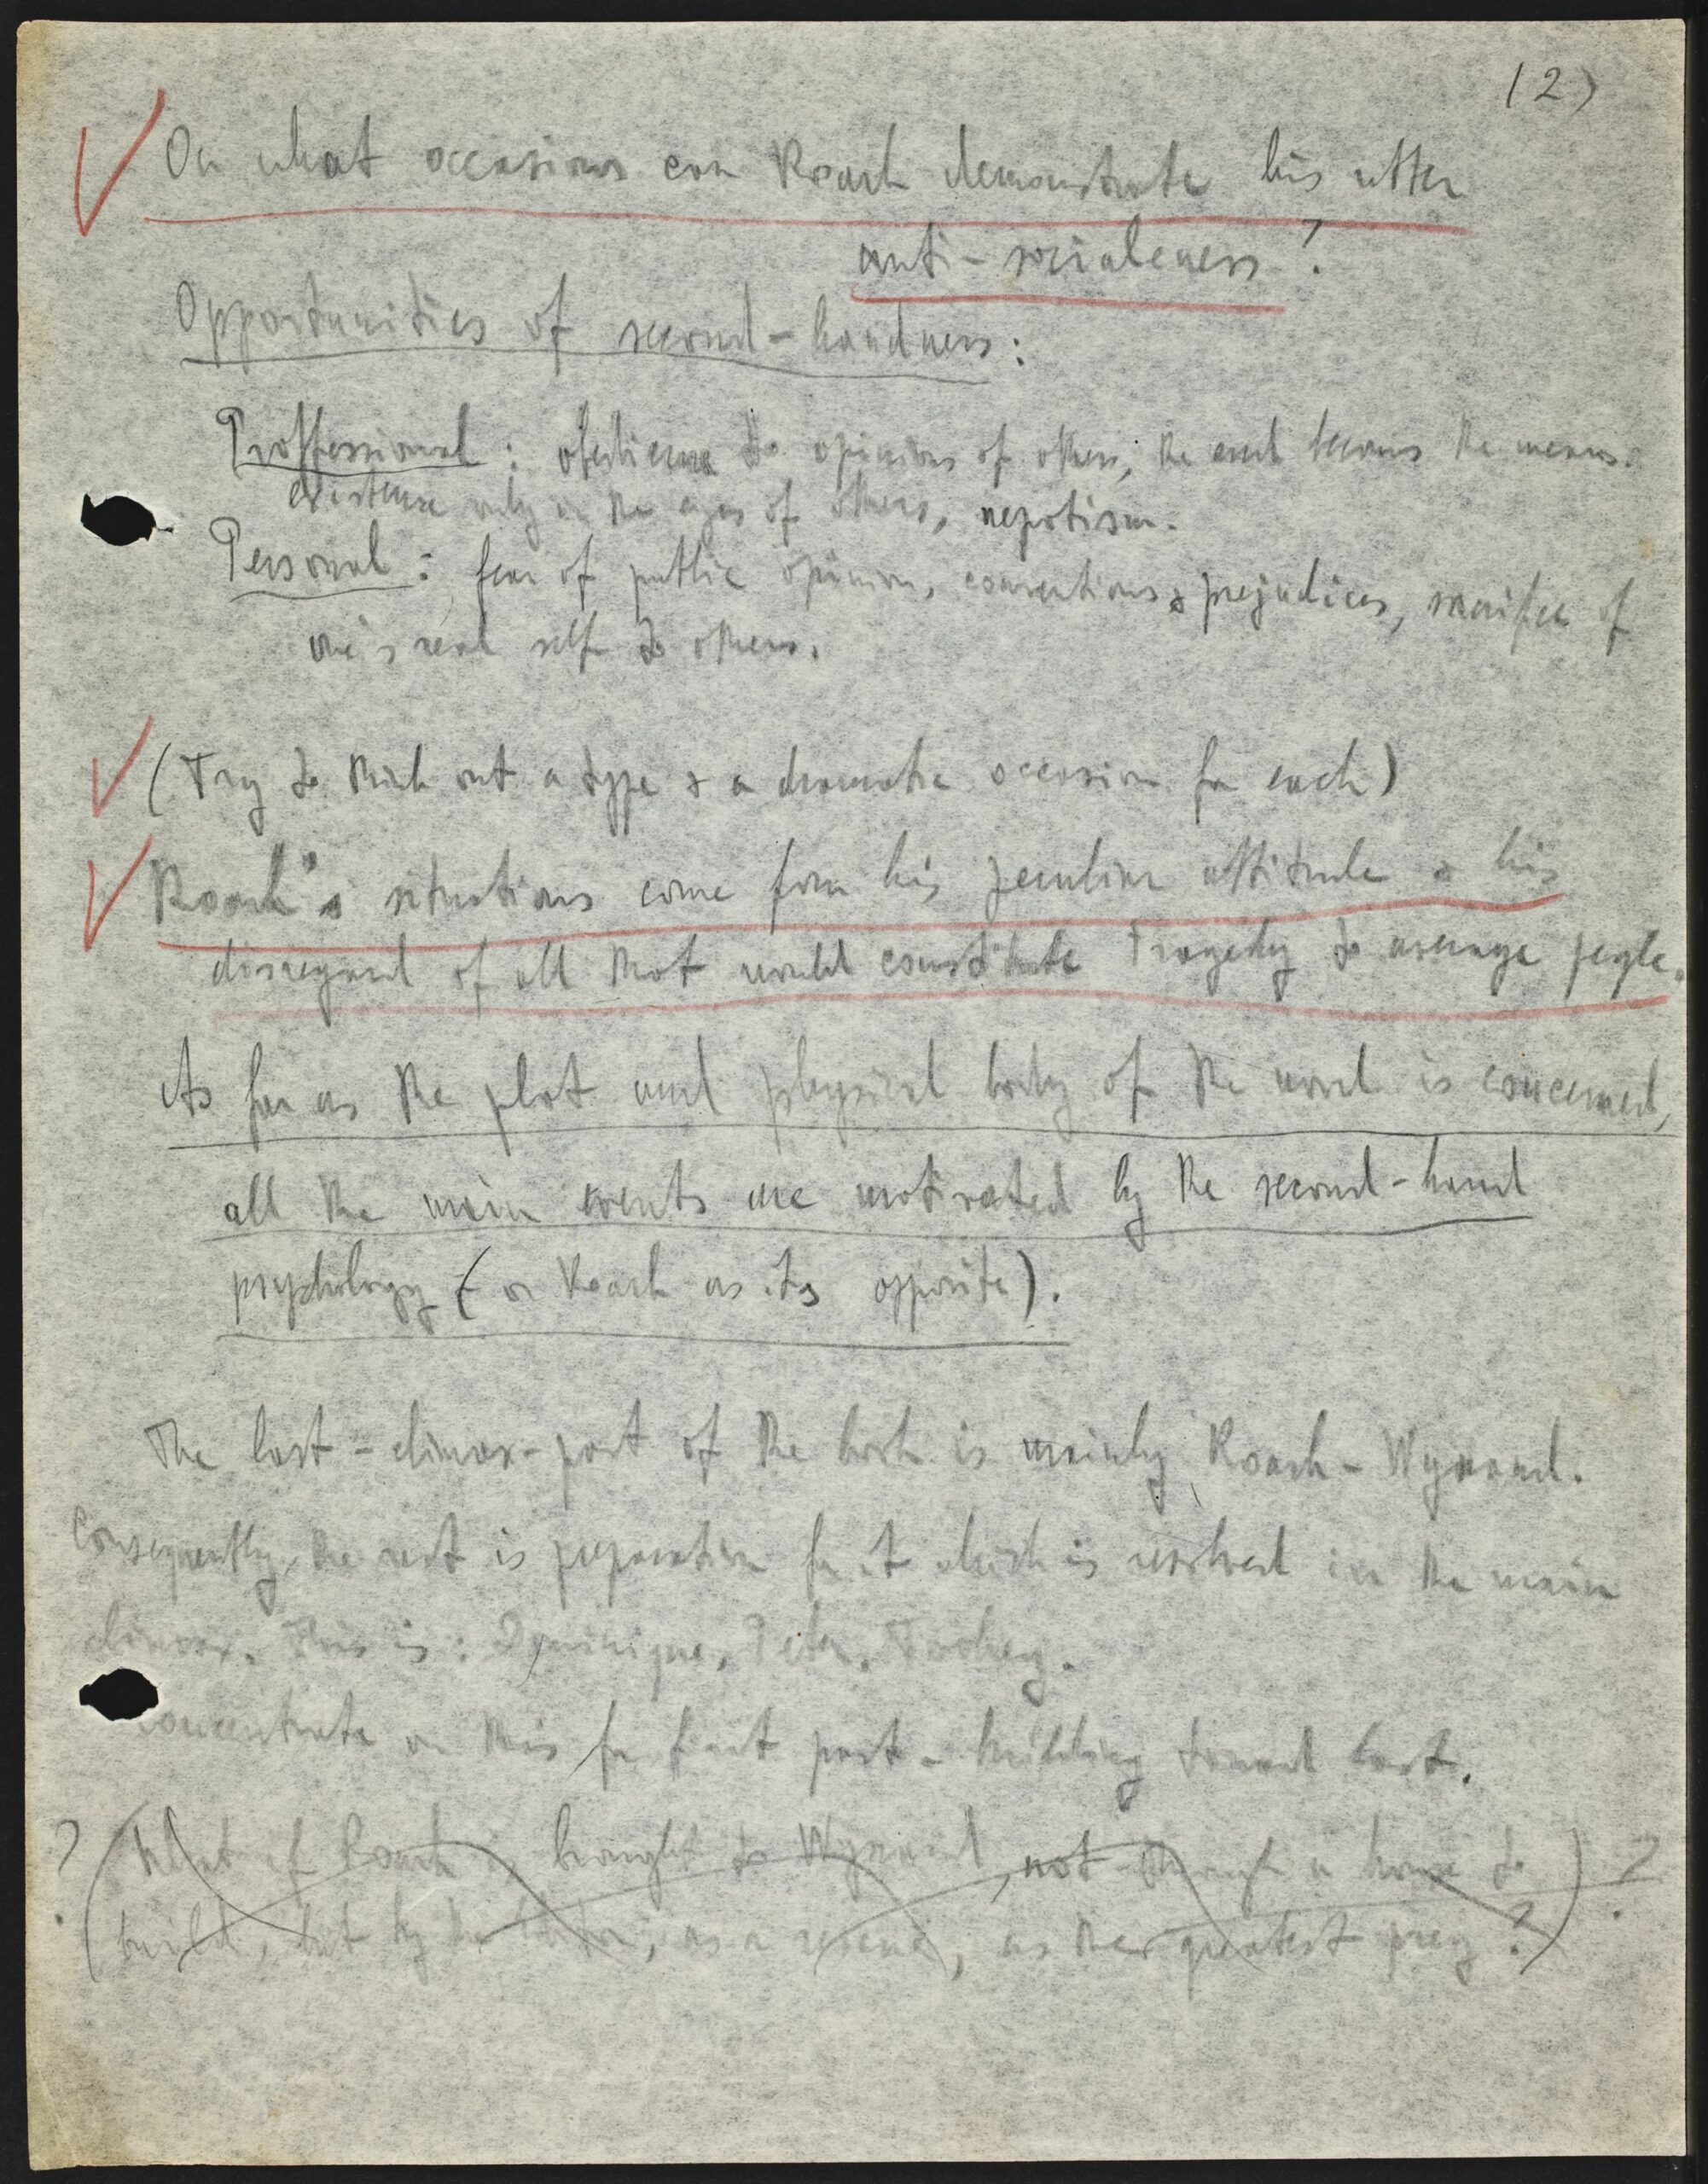 (2)
On what occasions can Roark demonstrate his utter
anti-socialeness?
Opportunities of second-handness:
Proffessional: obedience to opinions of others, the end becomes the means.
existence only in the eyes of others, nepotism.
Personal: fear of public opinion, conventions & prejudices, sacrifice of
one's real self to others.
(Try to think out a type & a dramatic occasion for each)
Roark's situations come from his peculiar attitude & his
disregard of all that would constitute tragedy to average people.
As far as the plot and physical body of the novel is concerned,
all the main events are motivated by the second-hand
psychology (or Roark as its opposite).
The last - climax - part of the book is mainly Roark - Wynand.
Consequently, the rest is preparation for it which is resolved in the main
climax. This is: Dominique, Peter, Toohey.
Concentrate on this for first part - building toward last.
? (What if Roark is brought to Wynand, not through a house to ) ?
(build, but by as a rescue, as the greatest prey?)